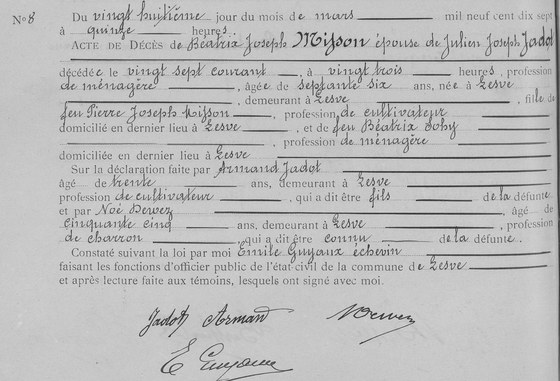 N° 8 Du vingt huitième jour du mois de mars mil neuf cent dix sept
à quinze heures.
ACTE DE DÉCÈS de Béatrix Joseph Misson épouse de Julien Joseph Jadot
décédée le vingt sept courant, à vingt trois heures, profession
de ménagère, âgée de septante six ans, née à Lesve
, demeurant à Lesve, fille de
feu Pierre Joseph Misson, profession de cultivateur
domicilié en dernier lieu à Lesve, et de feu Béatrix Sohy
profession de ménagère
domiciliée en dernier lieu à Lesve
Sur la déclaration faite par Armand Jadot
âgé de trente ans, demeurant à Lesve
profession de cultivateur, qui a dit être fils de la défunte
et par Noé Dewez, âgé de
cinquante cinq ans, demeurant à Lesve, profession
de charron, qui a dit être connu de la défunte.
Constaté suivant la loi par moi Emile Guyaux échevin
faisant les fonctions d'officier public de l'état-civil de la commune de Lesve
et après lecture faite aux témoins, lesquels ont signé avec moi.
Jadot Armand NDewez
E Guyaux